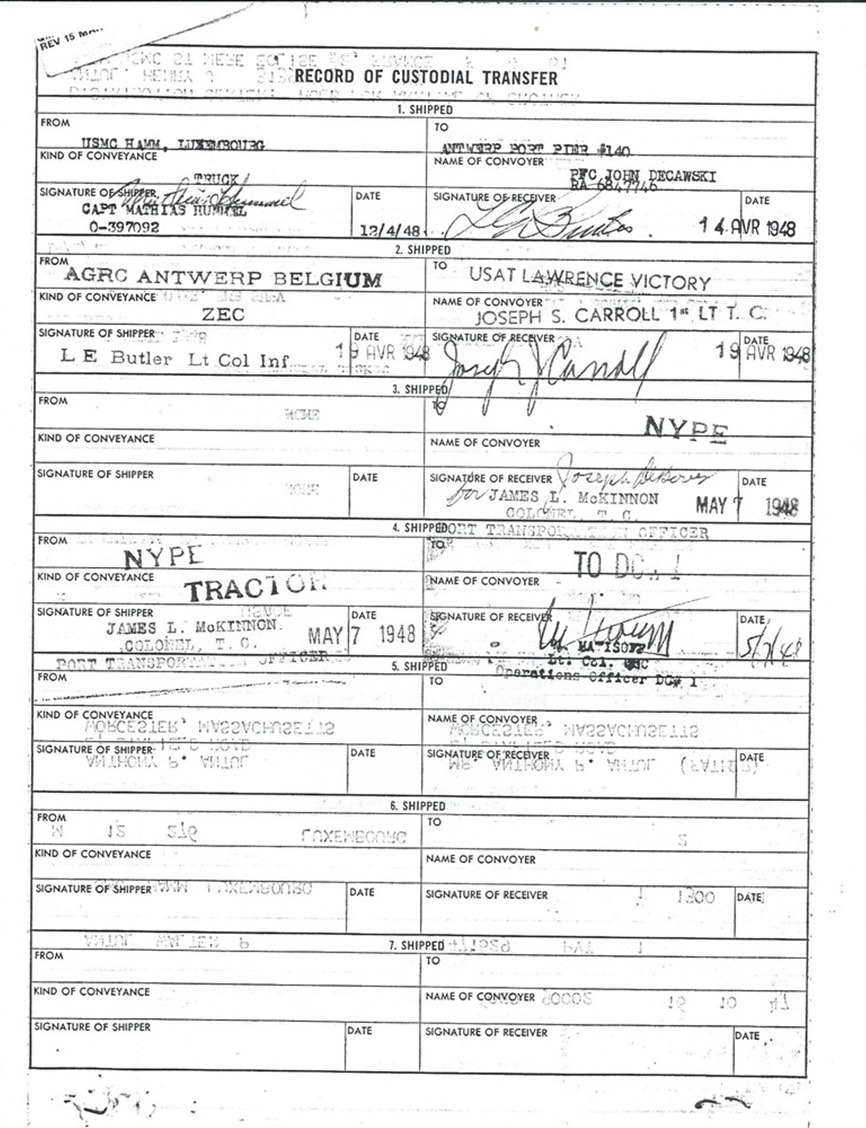 REV 15 MAR
RECORD OF CUSTODIAL TRANSFER
1. SHIPPED
FROM
USMC HAMM, LUXEMBOURG
TO
ANTWERP PORT PIER #140
KIND OF CONVEYANCE
TRUCK
NAME OF CONVOYER
PFC JOHN DECAWSKI
RA 6847746
SIGNATURE OF SHIPPER
CAPT MATHIAS HUMMEL
O-397092
DATE
12/4/48
SIGNATURE OF RECEIVER
DATE
14 AVR 1948
2. SHIPPED
FROM
AGRC ANTWERP BELGIUM
TO
USAT LAWRENCE VICTORY
KIND OF CONVEYANCE
ZEC
NAME OF CONVOYER
JOSEPH S. CARROLL 1st LT T. C.
SIGNATURE OF SHIPPER
L E Butler Lt Col Inf
DATE
19 AVR 1948
SIGNATURE OF RECEIVER
Joseph J Carroll
DATE
19 AVR 1948
3. SHIPPED
FROM
TO
NYPE
KIND OF CONVEYANCE
NAME OF CONVOYER
SIGNATURE OF SHIPPER
DATE
SIGNATURE OF RECEIVER
for JAMES L. McKINNON
COLONEL, T. C.
PORT TRANSPORTATION OFFICER
DATE
MAY 7 1948
4. SHIPPED
FROM
NYPE
TO
TO DC# 1
KIND OF CONVEYANCE
TRACTOR
NAME OF CONVOYER
SIGNATURE OF SHIPPER
JAMES L. McKINNON
COLONEL, T. C.
PORT TRANSPORTATION OFFICER
DATE
MAY 7 1948
SIGNATURE OF RECEIVER
MATISOFF
Lt. Col. QMC
Operations Officer DC# 1
DATE
5/7/48
5. SHIPPED
FROM
TO
KIND OF CONVEYANCE
WORCESTER, MASSACHUSETTS
NAME OF CONVOYER
WORCESTER, MASSACHUSETTS
SIGNATURE OF SHIPPER
ANTHONY P. ANTUL
DATE
SIGNATURE OF RECEIVER
MR. ANTHONY P. ANTUL (FATHER)
DATE
6. SHIPPED
FROM
N 12 276 LUXEMBOURG
TO
KIND OF CONVEYANCE
NAME OF CONVOYER
SIGNATURE OF SHIPPER
HAMM LUXEMBOURG
DATE
SIGNATURE OF RECEIVER
1300
DATE
ANTUL WALTER P
7. SHIPPED
PVT 1
FROM
TO
KIND OF CONVEYANCE
NAME OF CONVOYER
SIGNATURE OF SHIPPER
DATE
SIGNATURE OF RECEIVER
DATE